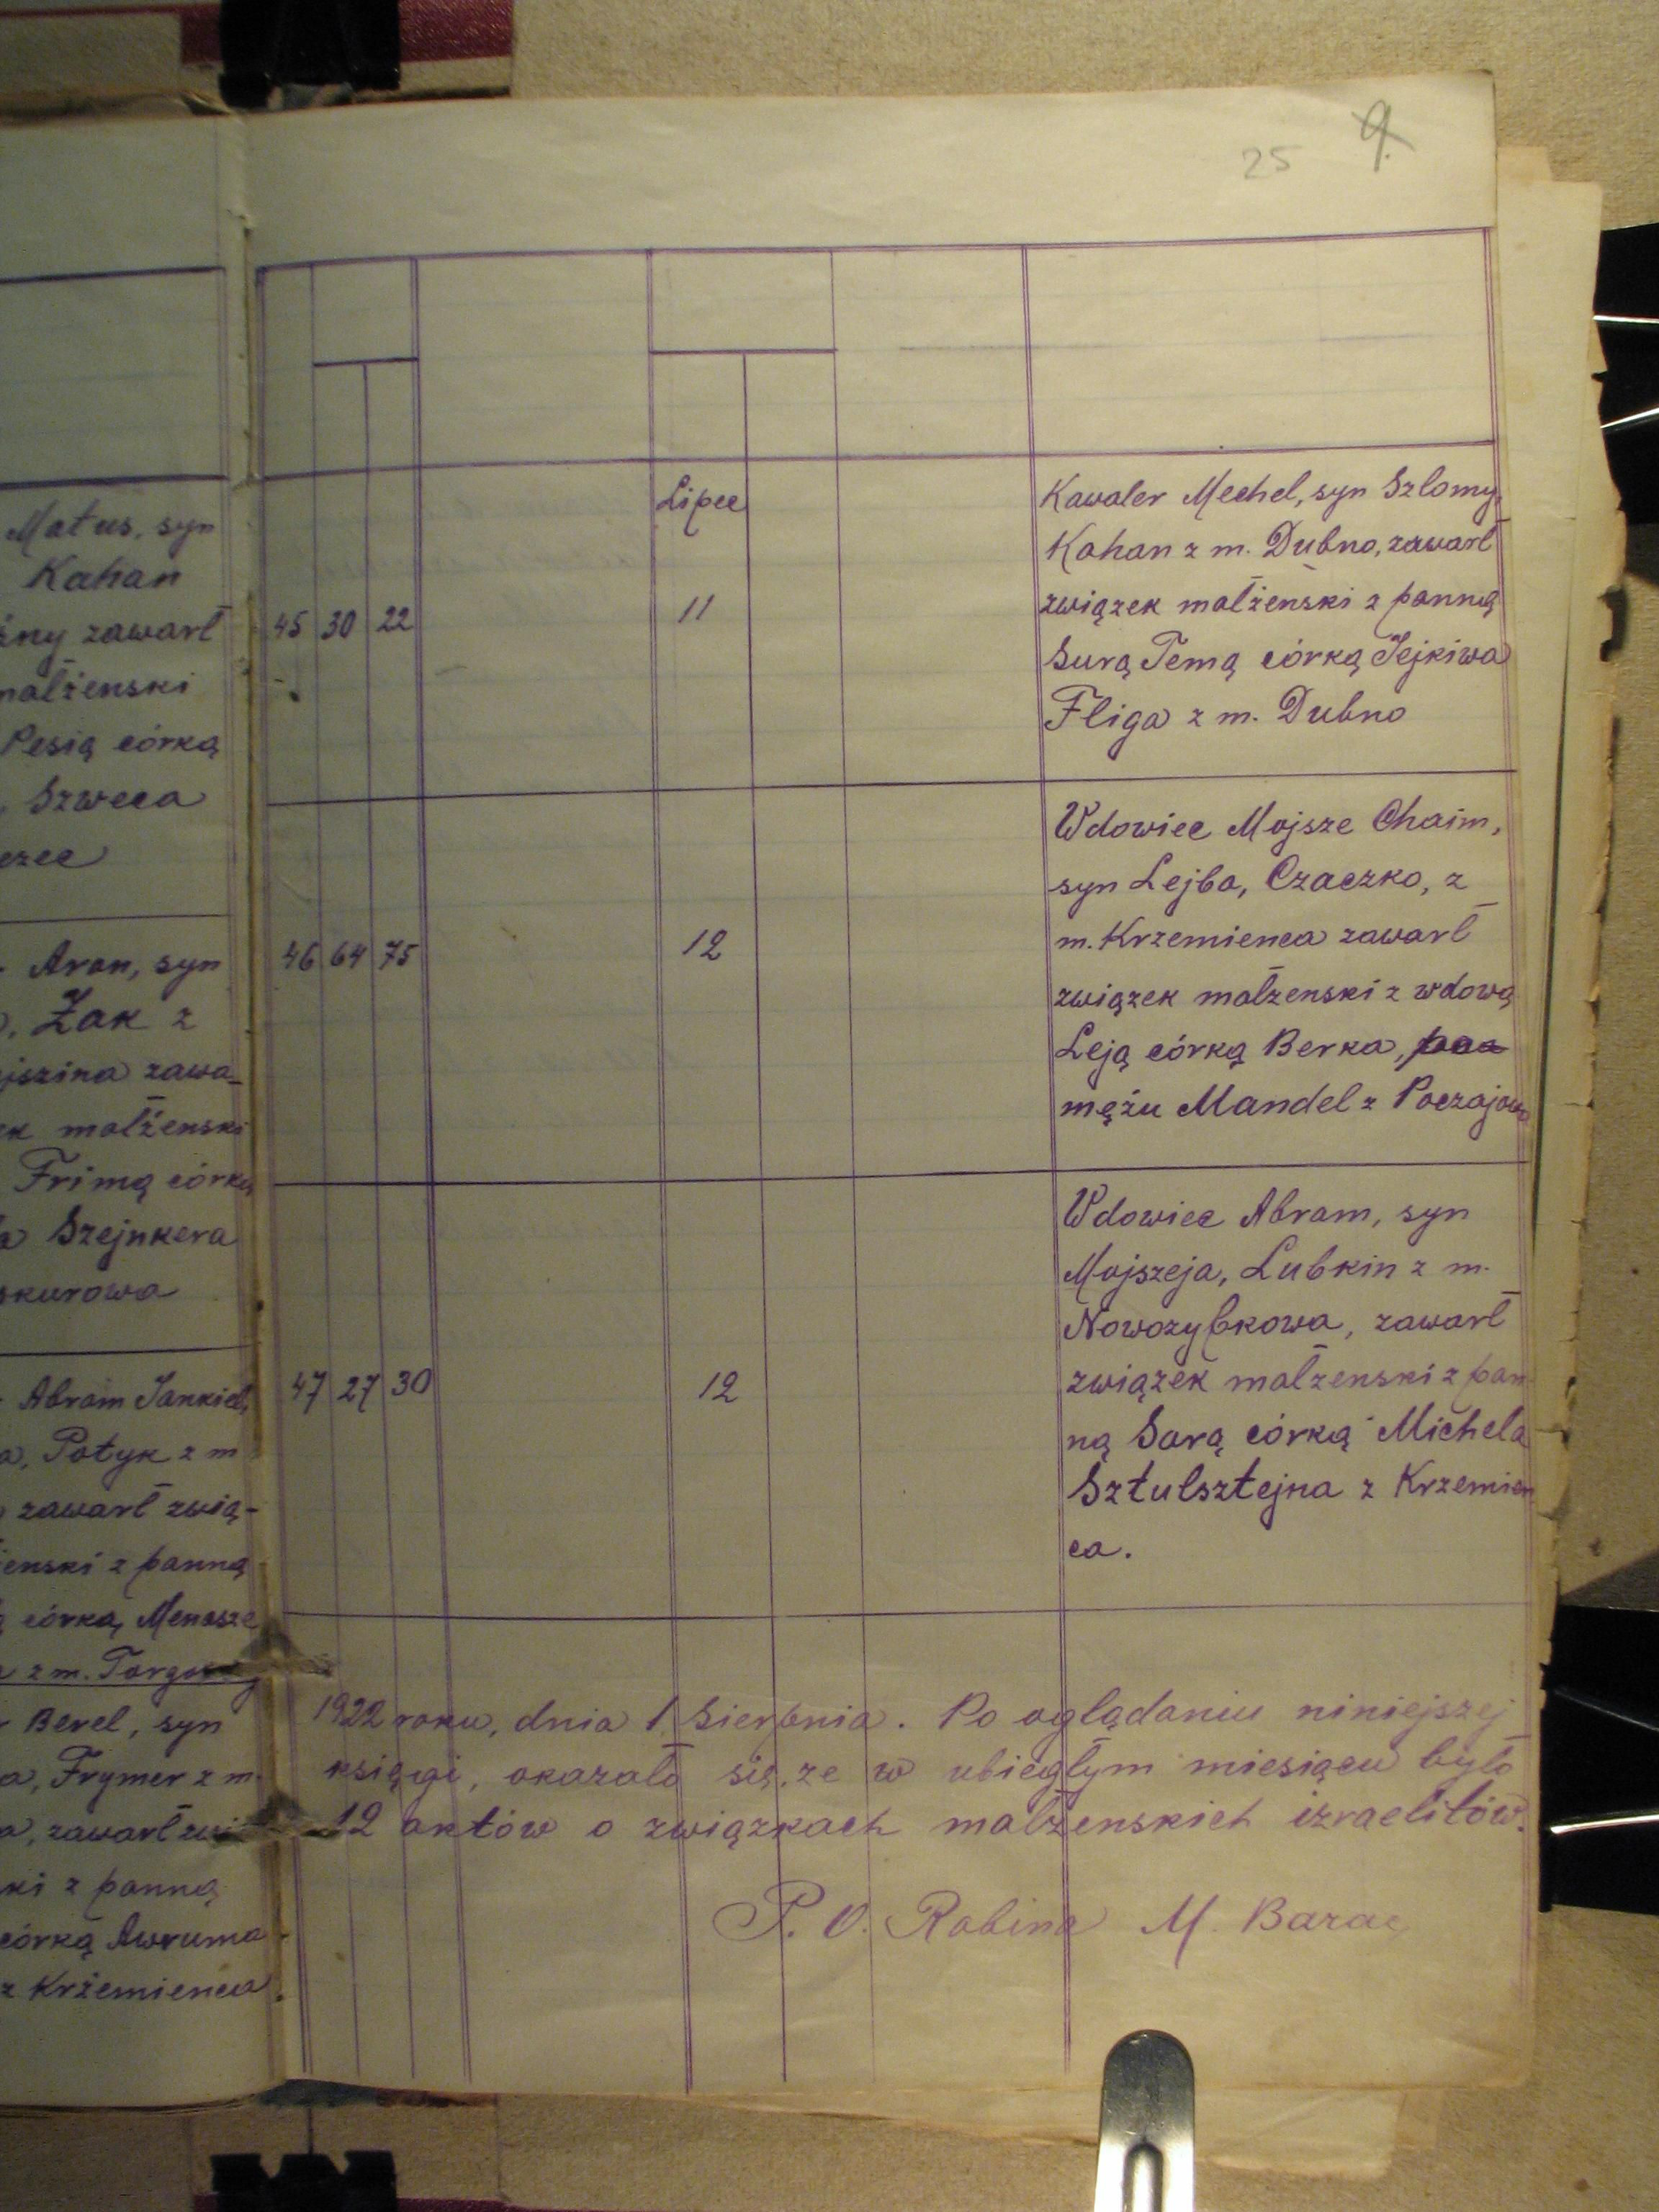 25 9.
Matus, syn
Kahan
zny zawarł
małżenski
Pesią córką
Szweca
Aron, syn
Żak z
jszina zawa-
ek małżenski
Frimą córką
Szejnkera
skurowa
Abram Jankiel,
a, Potyk z m
zawarł zwią-
enski z panną
córką Menasze
z m.
Berel, syn
a, Frymer z m.
a, zawarł
ki z panną
córką Awruma
z Krżemienca.
Lipec
45 30 22 11
Kawaler Mechel, syn Szlomy,
Kahan z m. Dubno, zawarł
związek małżenski z panną
Surą Temą córką Jejkiwa
Fliga z m. Dubno
46 64 75 12
Wdowiec Mojsze Chaim,
syn Lejba, Czaczko, z
m. Krzemienca zawarł
związek małzenski z wdową
Leją córką Berka,
mężu Mandel z Poczajowa
47 27 30 12
Wdowiec Abram, syn
Mojszeja, Lubkin z m.
Nowozybkowa, zawarł
związek małzenski z pan
ną Sarą córką Michela
Sztulsztejna z Krzemien
ca.
1922 roku, dnia 1 Sierpnia. Po oglądaniu niniejszej
księgi, okazało się, ze w ubiegłym miesiącu było
12 aktów o związkach małżenskich izraelitów.
P. O. Rabina M. Barac